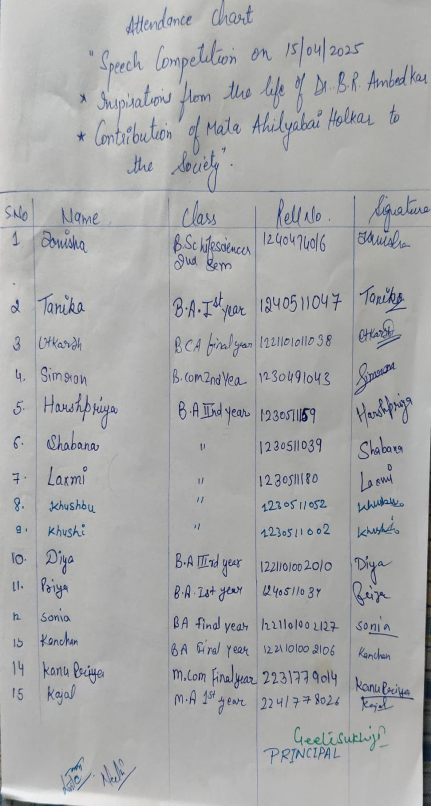 Attendance Chart
"Speech Competition on 15/04/2025
* Inspirations from the life of Dr. B.R. Ambedkar
* Contribution of Mata Ahilyabai Holkar to
the Society".
S.No Name Class Roll No. Signature
1 Tanisha B.Sc lifesciences 2nd Sem Tanisha
2 Tanika B.A. Ist year 1240511047 Tanika
3 Utkarsh BCA final year 1221101011038 Utkarsh
4. Simran B.com 2nd Yea 1230491043 Simran
5. Harshpriya B.A IInd year 1230511159 Harshpriya
6. Shabana " 1230511039 Shabana
7. Laxmi " 1230511180 Laxmi
8. Khushbu " 1230511052 Khushboo
9. Khushi " 1230511002 Khushi
10. Diya B.A IIIrd year 1221101002010 Diya
11. Priya B.A. Ist year 1240511034 Priya
12 Sonia BA final year 1221101002127 Sonia
13 Kanchan BA final year 1221101002106 Kanchan
14 Kanu Priya M.com final year 2231779014 Kanu Priya
15 Kajal M.A 1st year 2241778026 Kajal
PRINCIPAL